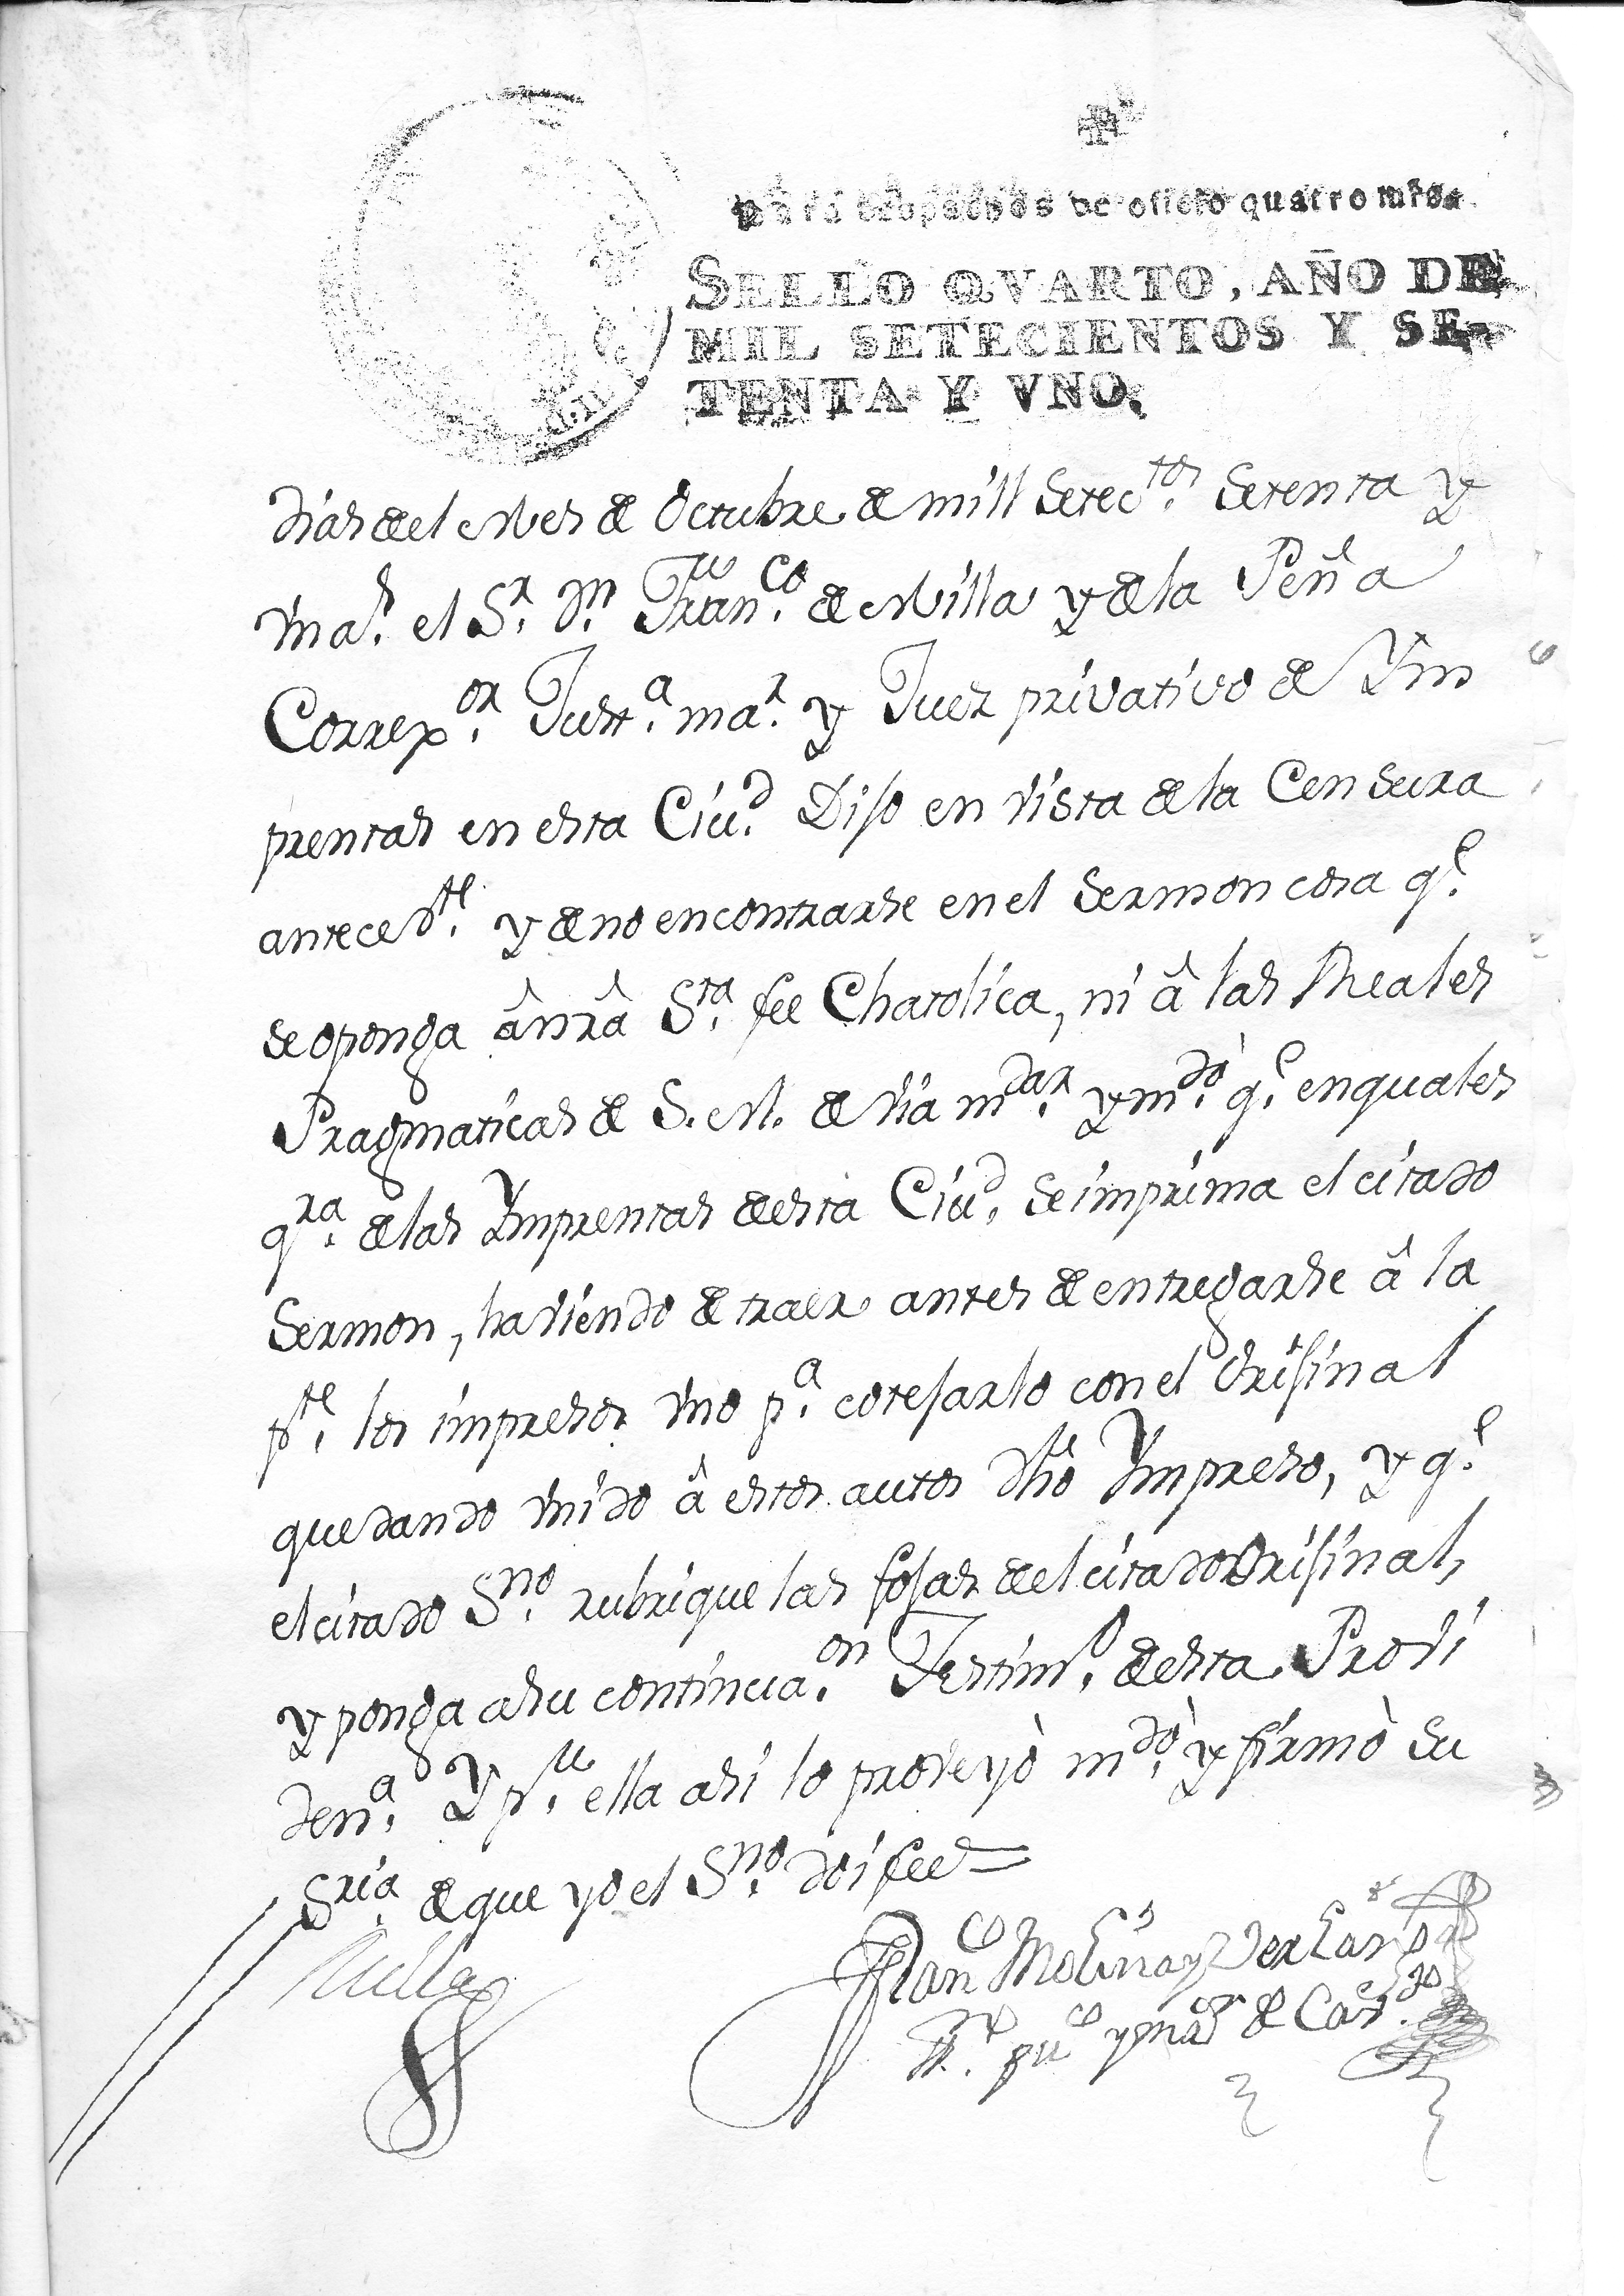 Para despachos de oficio quatro mrs.
SELLO QVARTO, AÑO DE
MIL SETECIENTOS Y SE-
TENTA Y VNO.
dias del Mes de Octubre de mill Setectos. Setenta y
Vno. el Sr. Dn. Franco. de Milla y de la Peña
Correxor. Justa. mar. y Juez privativo de Ym
prentas en esta Ciud. Dijo en vista de la Censura
antecedte. y de no encontrarse en el Sermon cosa qe.
se oponga â nrâ Sta. fee Chatolica, ni â las Reales
Pragmaticas de S. M. devia mdar. y mdò. qe. en quales
qra. de las Ymprentas desta Ciud. se imprima el citado
Sermon, haviendo de traer antes de entregarse â la
pte. los impresos Vno pa. cotejarlo con el Orijinal
quedando Vnido â estos autos dho Ympreso, y qe.
el citado Sno. rubrique las fojas del citado Orijinal,
y ponga asu continuaon. Testimo. desta Provi
dena. Y pr. ella asi lo proveyò mdò. y firmò su
Sria. de que yo el Sno. doi fee=
Milla
Franco Molina y
puco y mar de Cavdo.